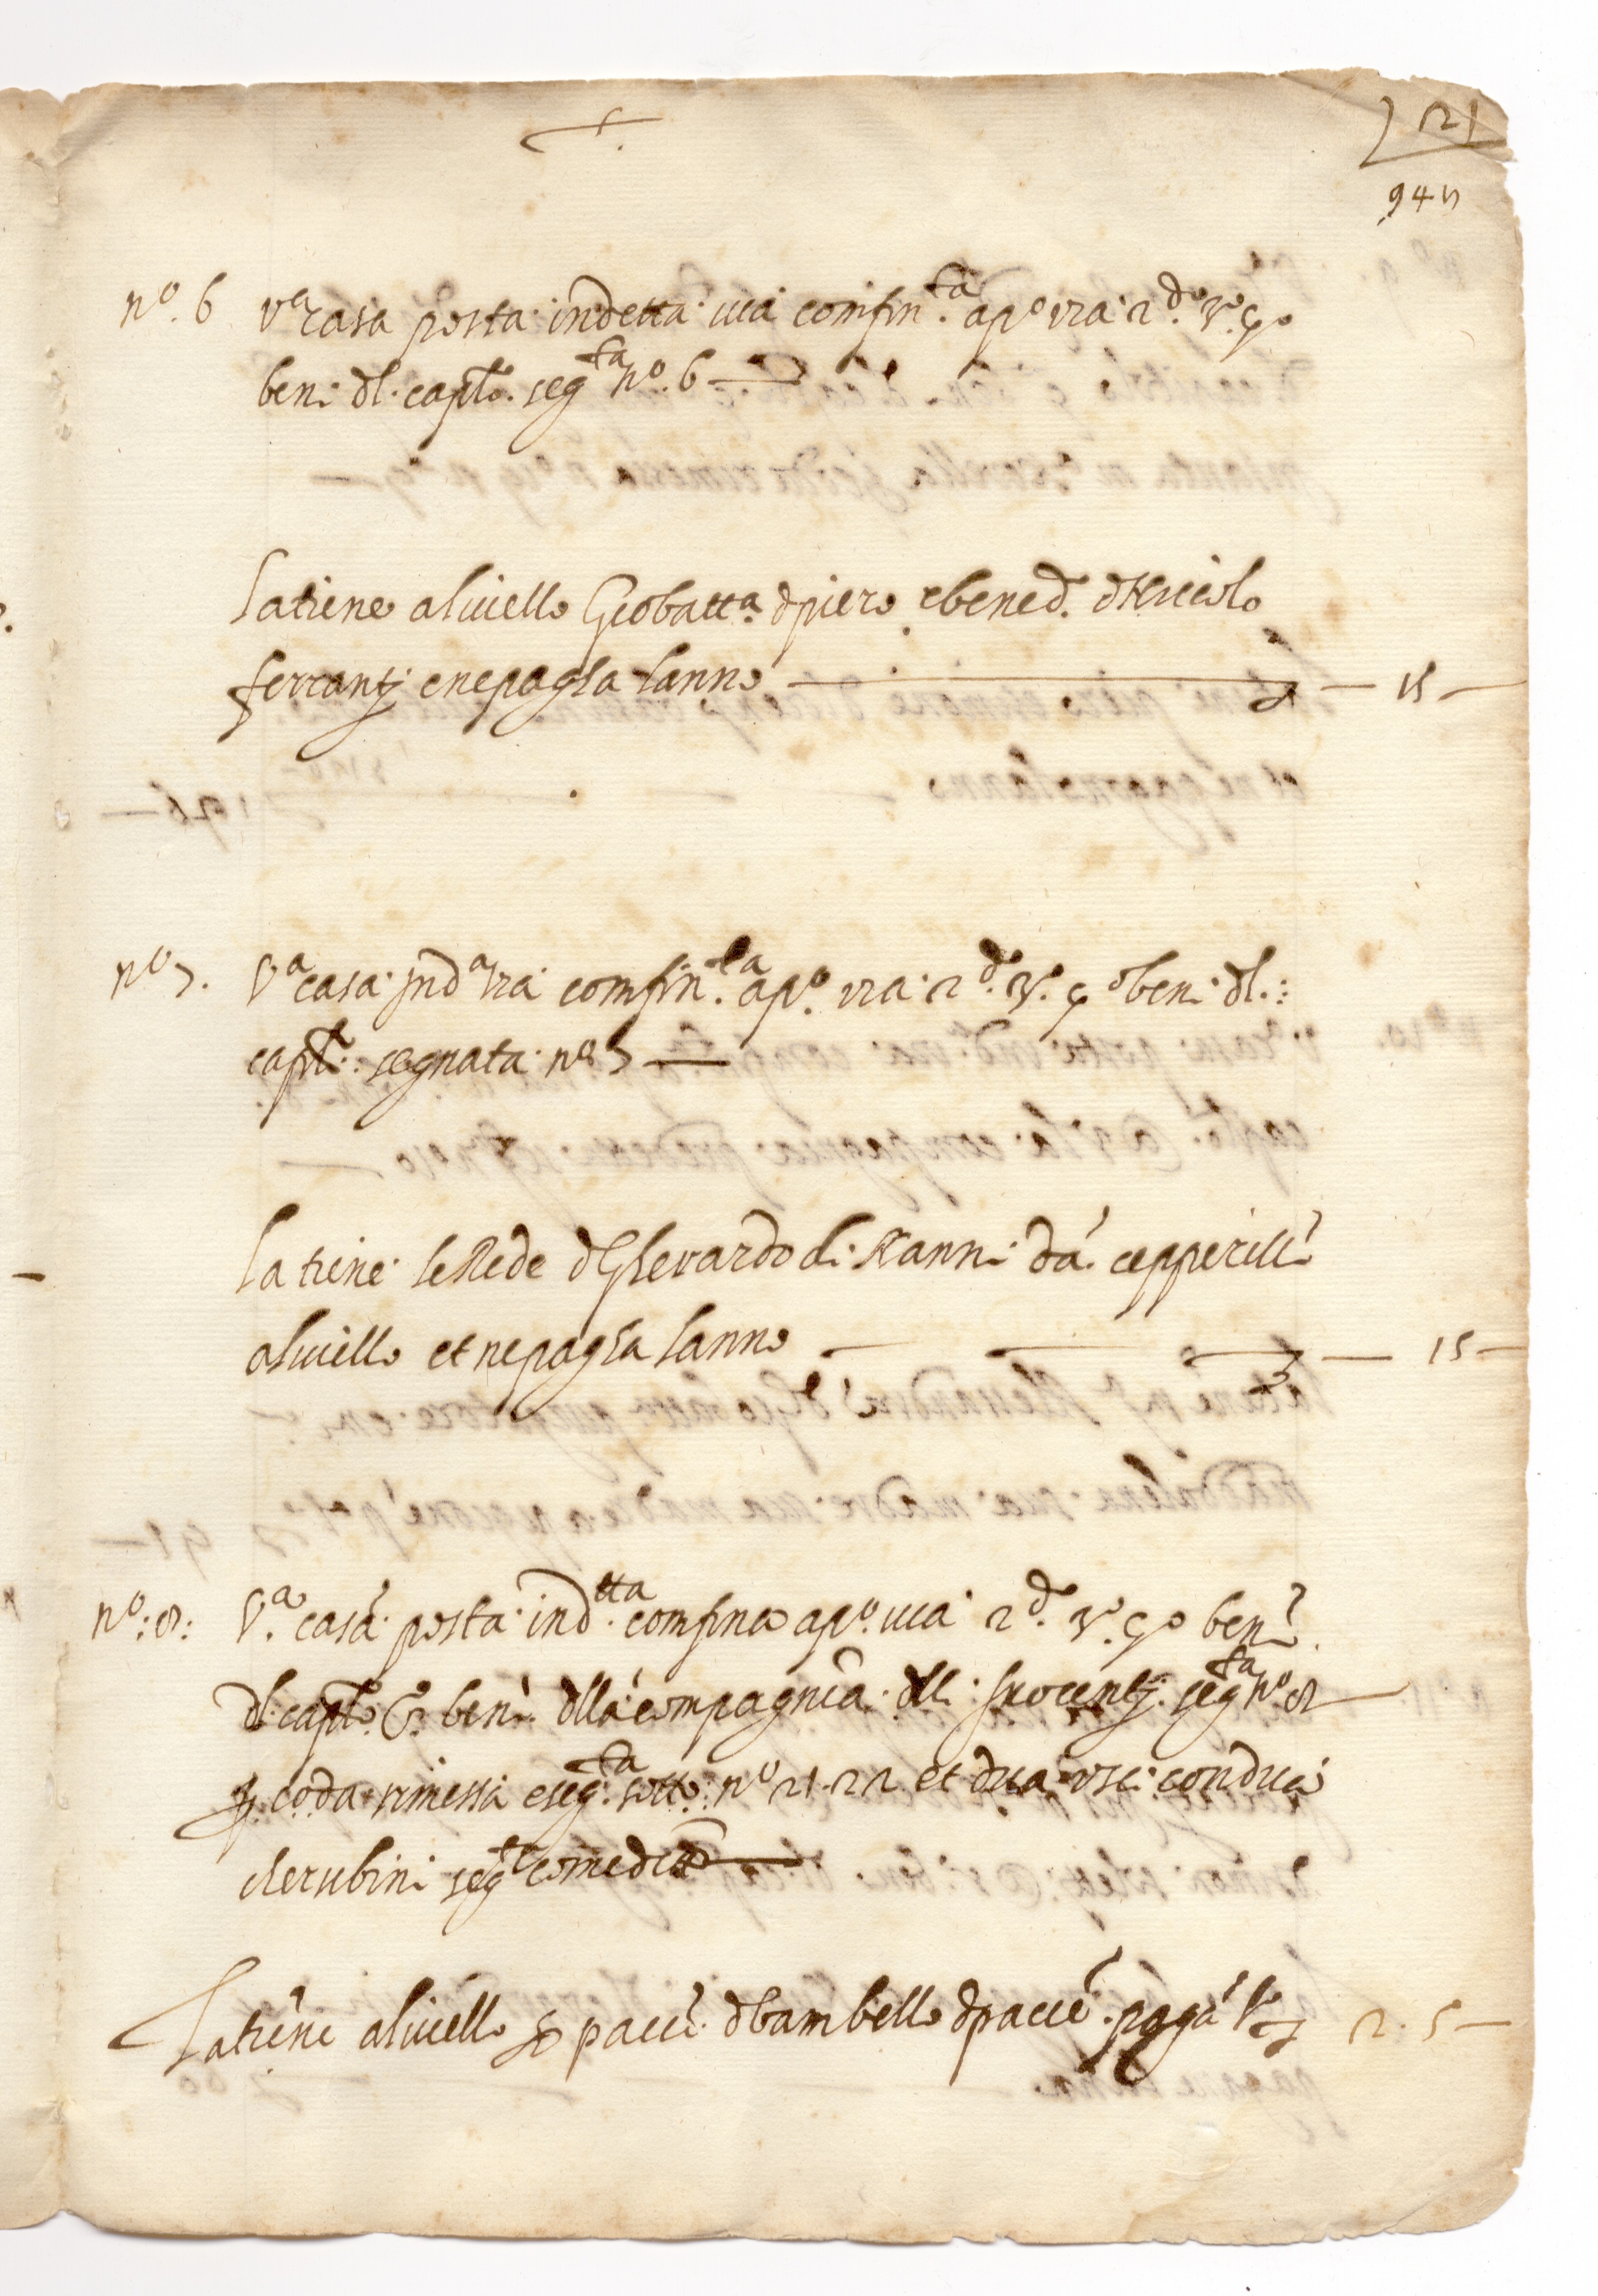 21
945
nº. 6 Vª casa posta indetta uia confin.ta apº via 2dº 3º 4º
beni dl. captº. segta nº. 6
la tiene aliuello Giobatta dpiero ebened. dNicolo
ferrantj enepagha lanno — 15 —
nº 7. Vª casa indª via confin.ta apº. via 2dº. 3º. 4º beni dl.:
captº: segnata nº 7 —
la tiene leRede dGherardo di Nanni da cepperilli
aliuello et nepagha lanno — 15 —
nº: 8: Vª. casa posta ind.tta confina apº. uia 2dº. 3º. 4º beni
dl. captº 5º. beni dlla compagnia dlli Inocentj segta nº 8
coda rimessa eseg.ta sotto nº 21. 22 et dua usci conduci
cherubini segti comedi
la tiene aliuello pacie dbambello dpacie. paga 2. 5 —